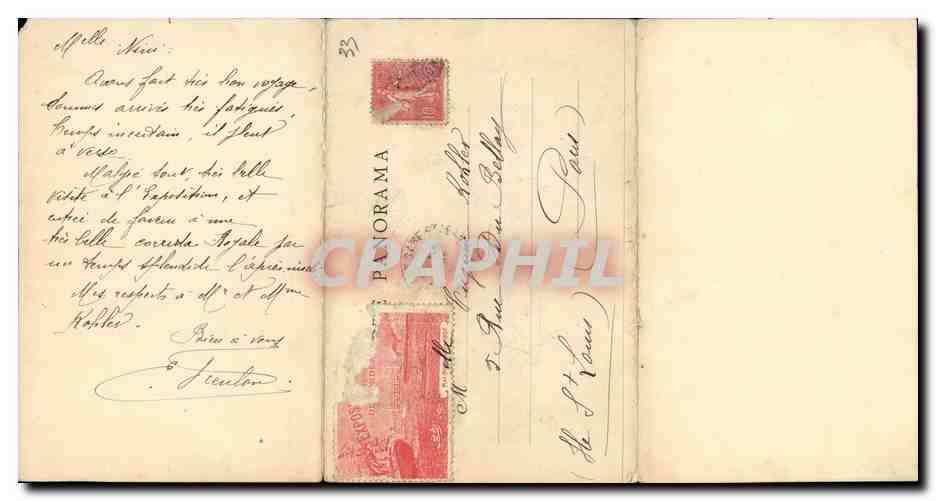 Melle Nini :
Avons fait très bon voyage,
sommes arrivés très fatigués,
temps incertain, il pleut
à verse
Malgré tout, très belle
visite à l'Exposition, et
entrée de faveur à une
très belle corrida Royale par
un temps splendide l'après midi
Mes respects à Mr et Mme
Kohler.
Bien à vous
33
PANORAMA
10
EXPOS
Melle Kohler
5 Rue Du Bellay
Paris
(Ile St Louis)
CPAPHIL